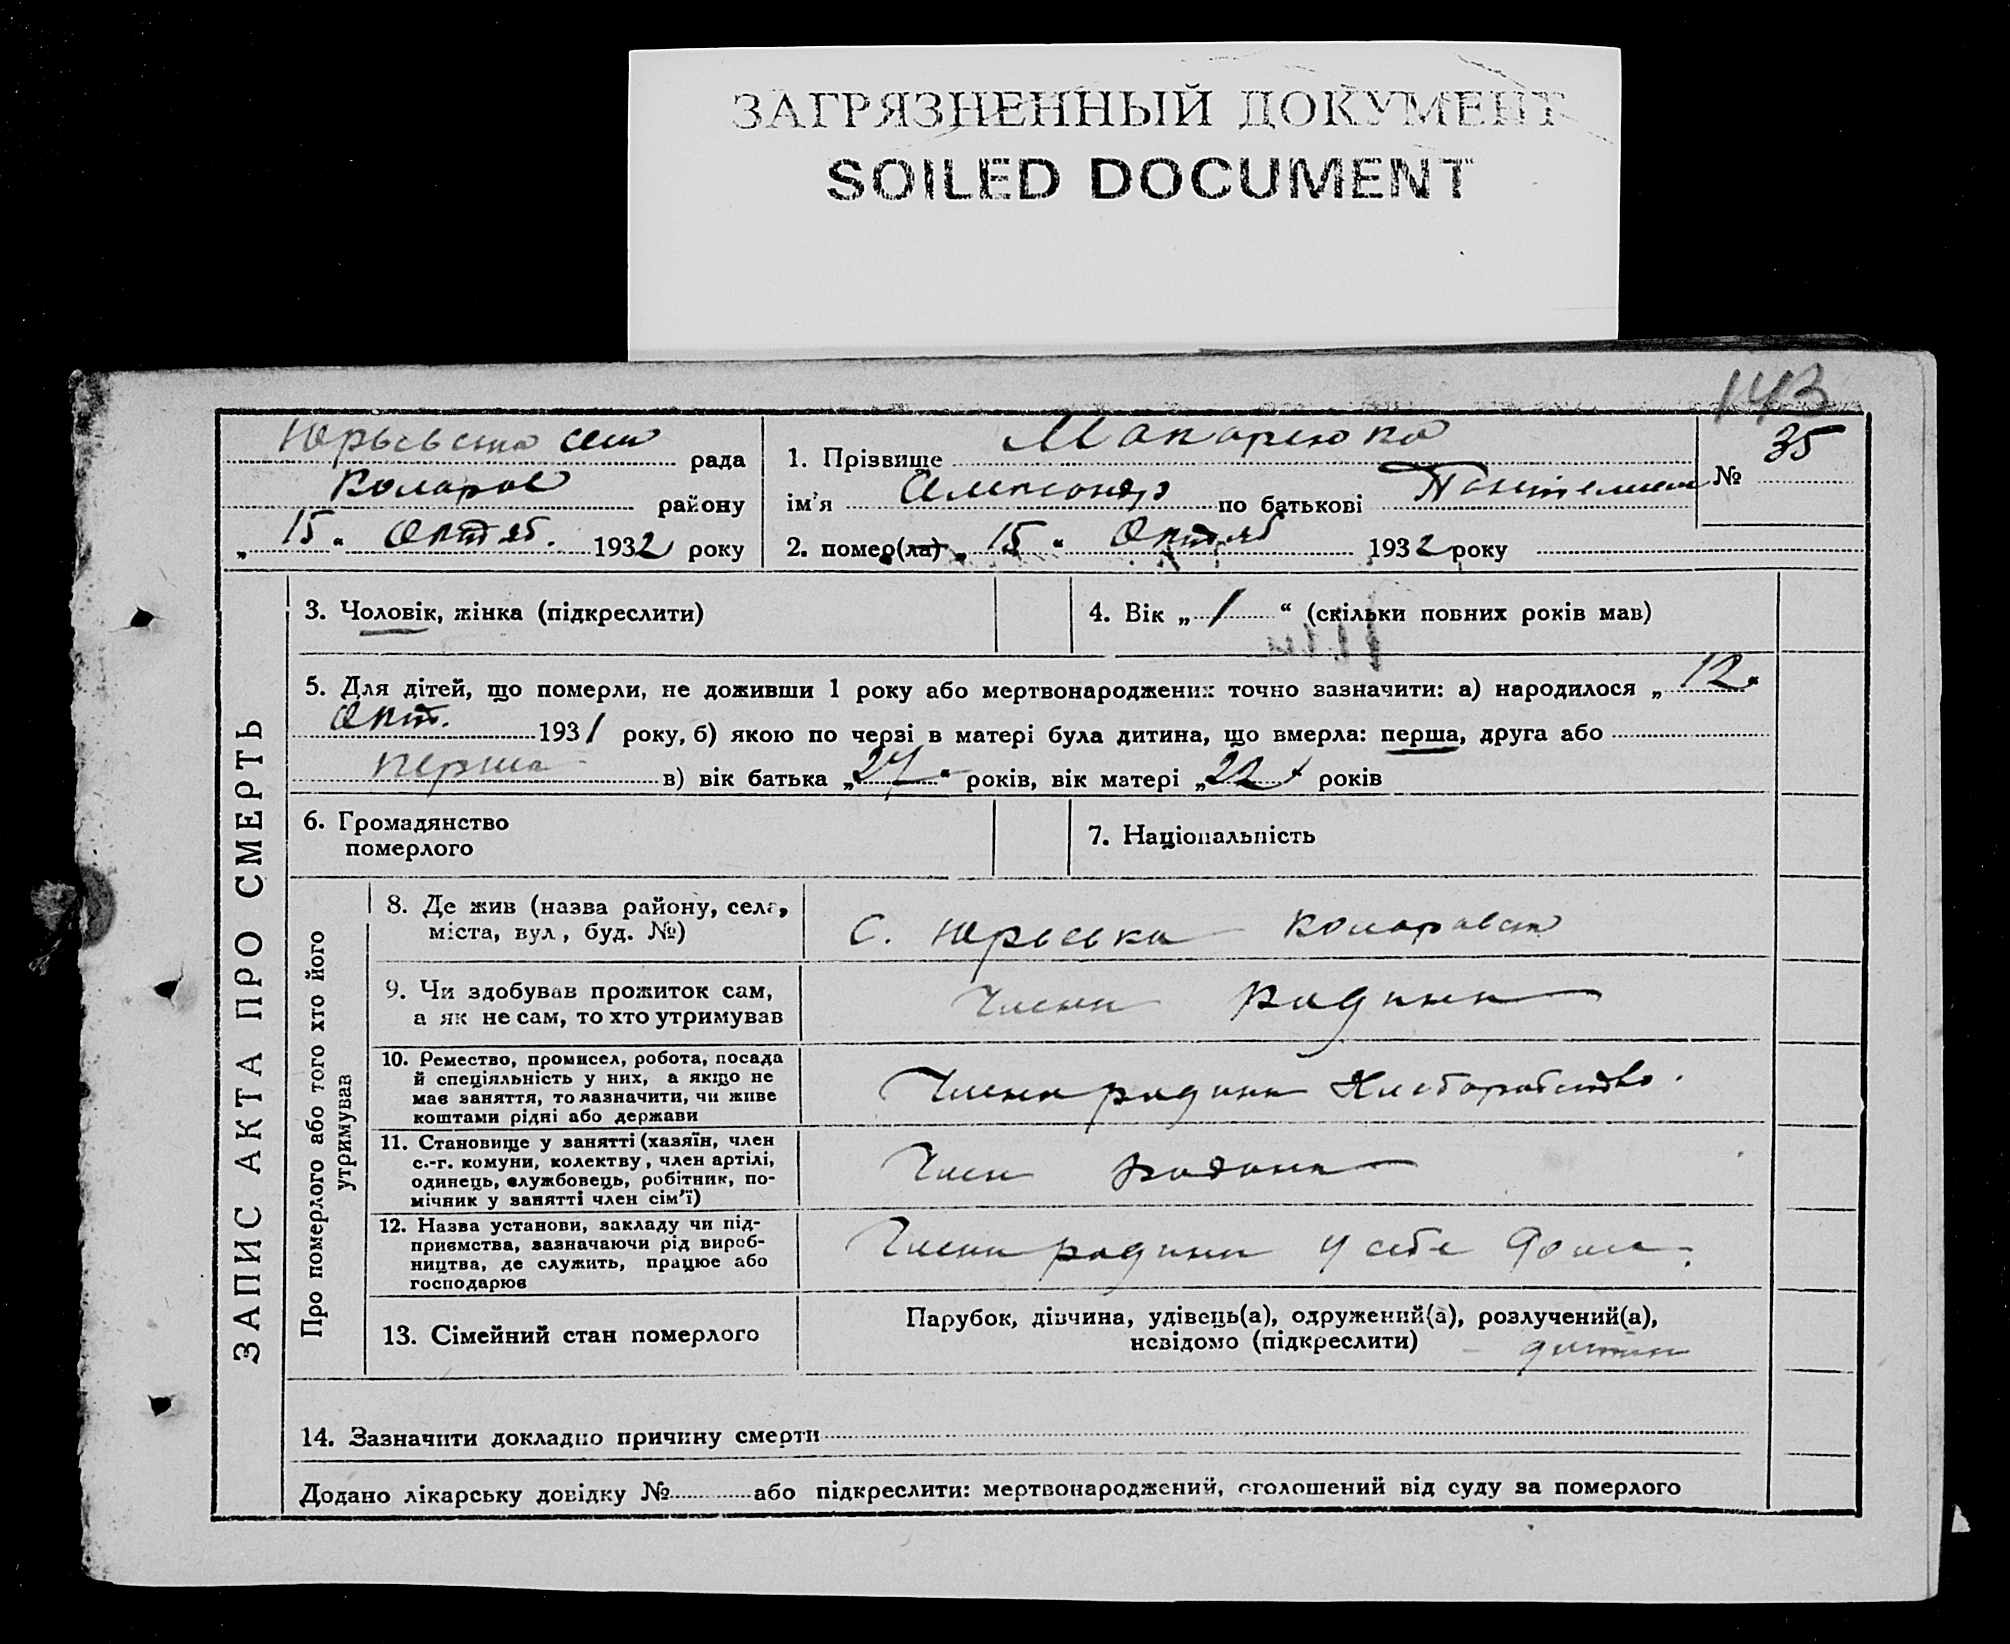 ЗАГРЯЗНЕННЫЙ ДОКУМЕНТ
SOILED DOCUMENT
143
Юрьевська сел рада
Комаров району
„ 15 “ Октяб. 1932 року
1. Прізвище Макарюка
ім'я Александр по батькові
2. помер(ла) „ 15 “ Октяб 1932 року
№ 35
ЗАПИС АКТА ПРО СМЕРТЬ
3. Чоловік, жінка (підкреслити)
4. Вік „ 1 “ (скільки повних років мав)
5. Для дітей, що померли, не доживши 1 року або мертвонароджених точно зазначити: а) народилося „ 12 “
Окт. 1931 року, б) якою по черзі в матері була дитина, що вмерла: перша, друга або
перша в) вік батька „ 24 “ років, вік матері „ 22 “ років
6. Громадянство
померлого
7. Національність
Про померлого або того хто його
утримував
8. Де жив (назва району, села,
міста, вул, буд. №)
с. Юрьевка
9. Чи здобував прожиток сам,
а як не сам, то хто утримував
Член родини
10. Ремество, промисел, робота, посада
й спеціяльність у них, а якщо не
має заняття, то зазначити, чи живе
коштами рідні або держави
Член родини Хлеборобство.
11. Становище у занятті (хазяїн, член
с.-г. комуни, колектву, член артілі,
одинець, службовець, робітник, по-
мічник у занятті член сім'ї)
Член родини
12. Назва установи, закладу чи під-
приємства, зазначаючи рід вироб-
ництва, де служить, працює або
господарює
Член родини у себе дома.
13. Сімейний стан померлого
Парубок, дівчина, удівець(а), одружений(а), розлучений(а),
невідомо (підкреслити)
14. Зазначити докладно причину смерти
Додано лікарську довідку № або підкреслити: мертвонароджений, оголошений від суду за померлого